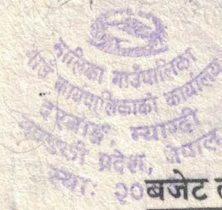 मालिका गाउँपालिका
गाउँ कार्यपालिकाको कार्यालय
दरबाङ, म्याग्दी
गण्डकी प्रदेश, नेपाल
स्था: २०
बजेट